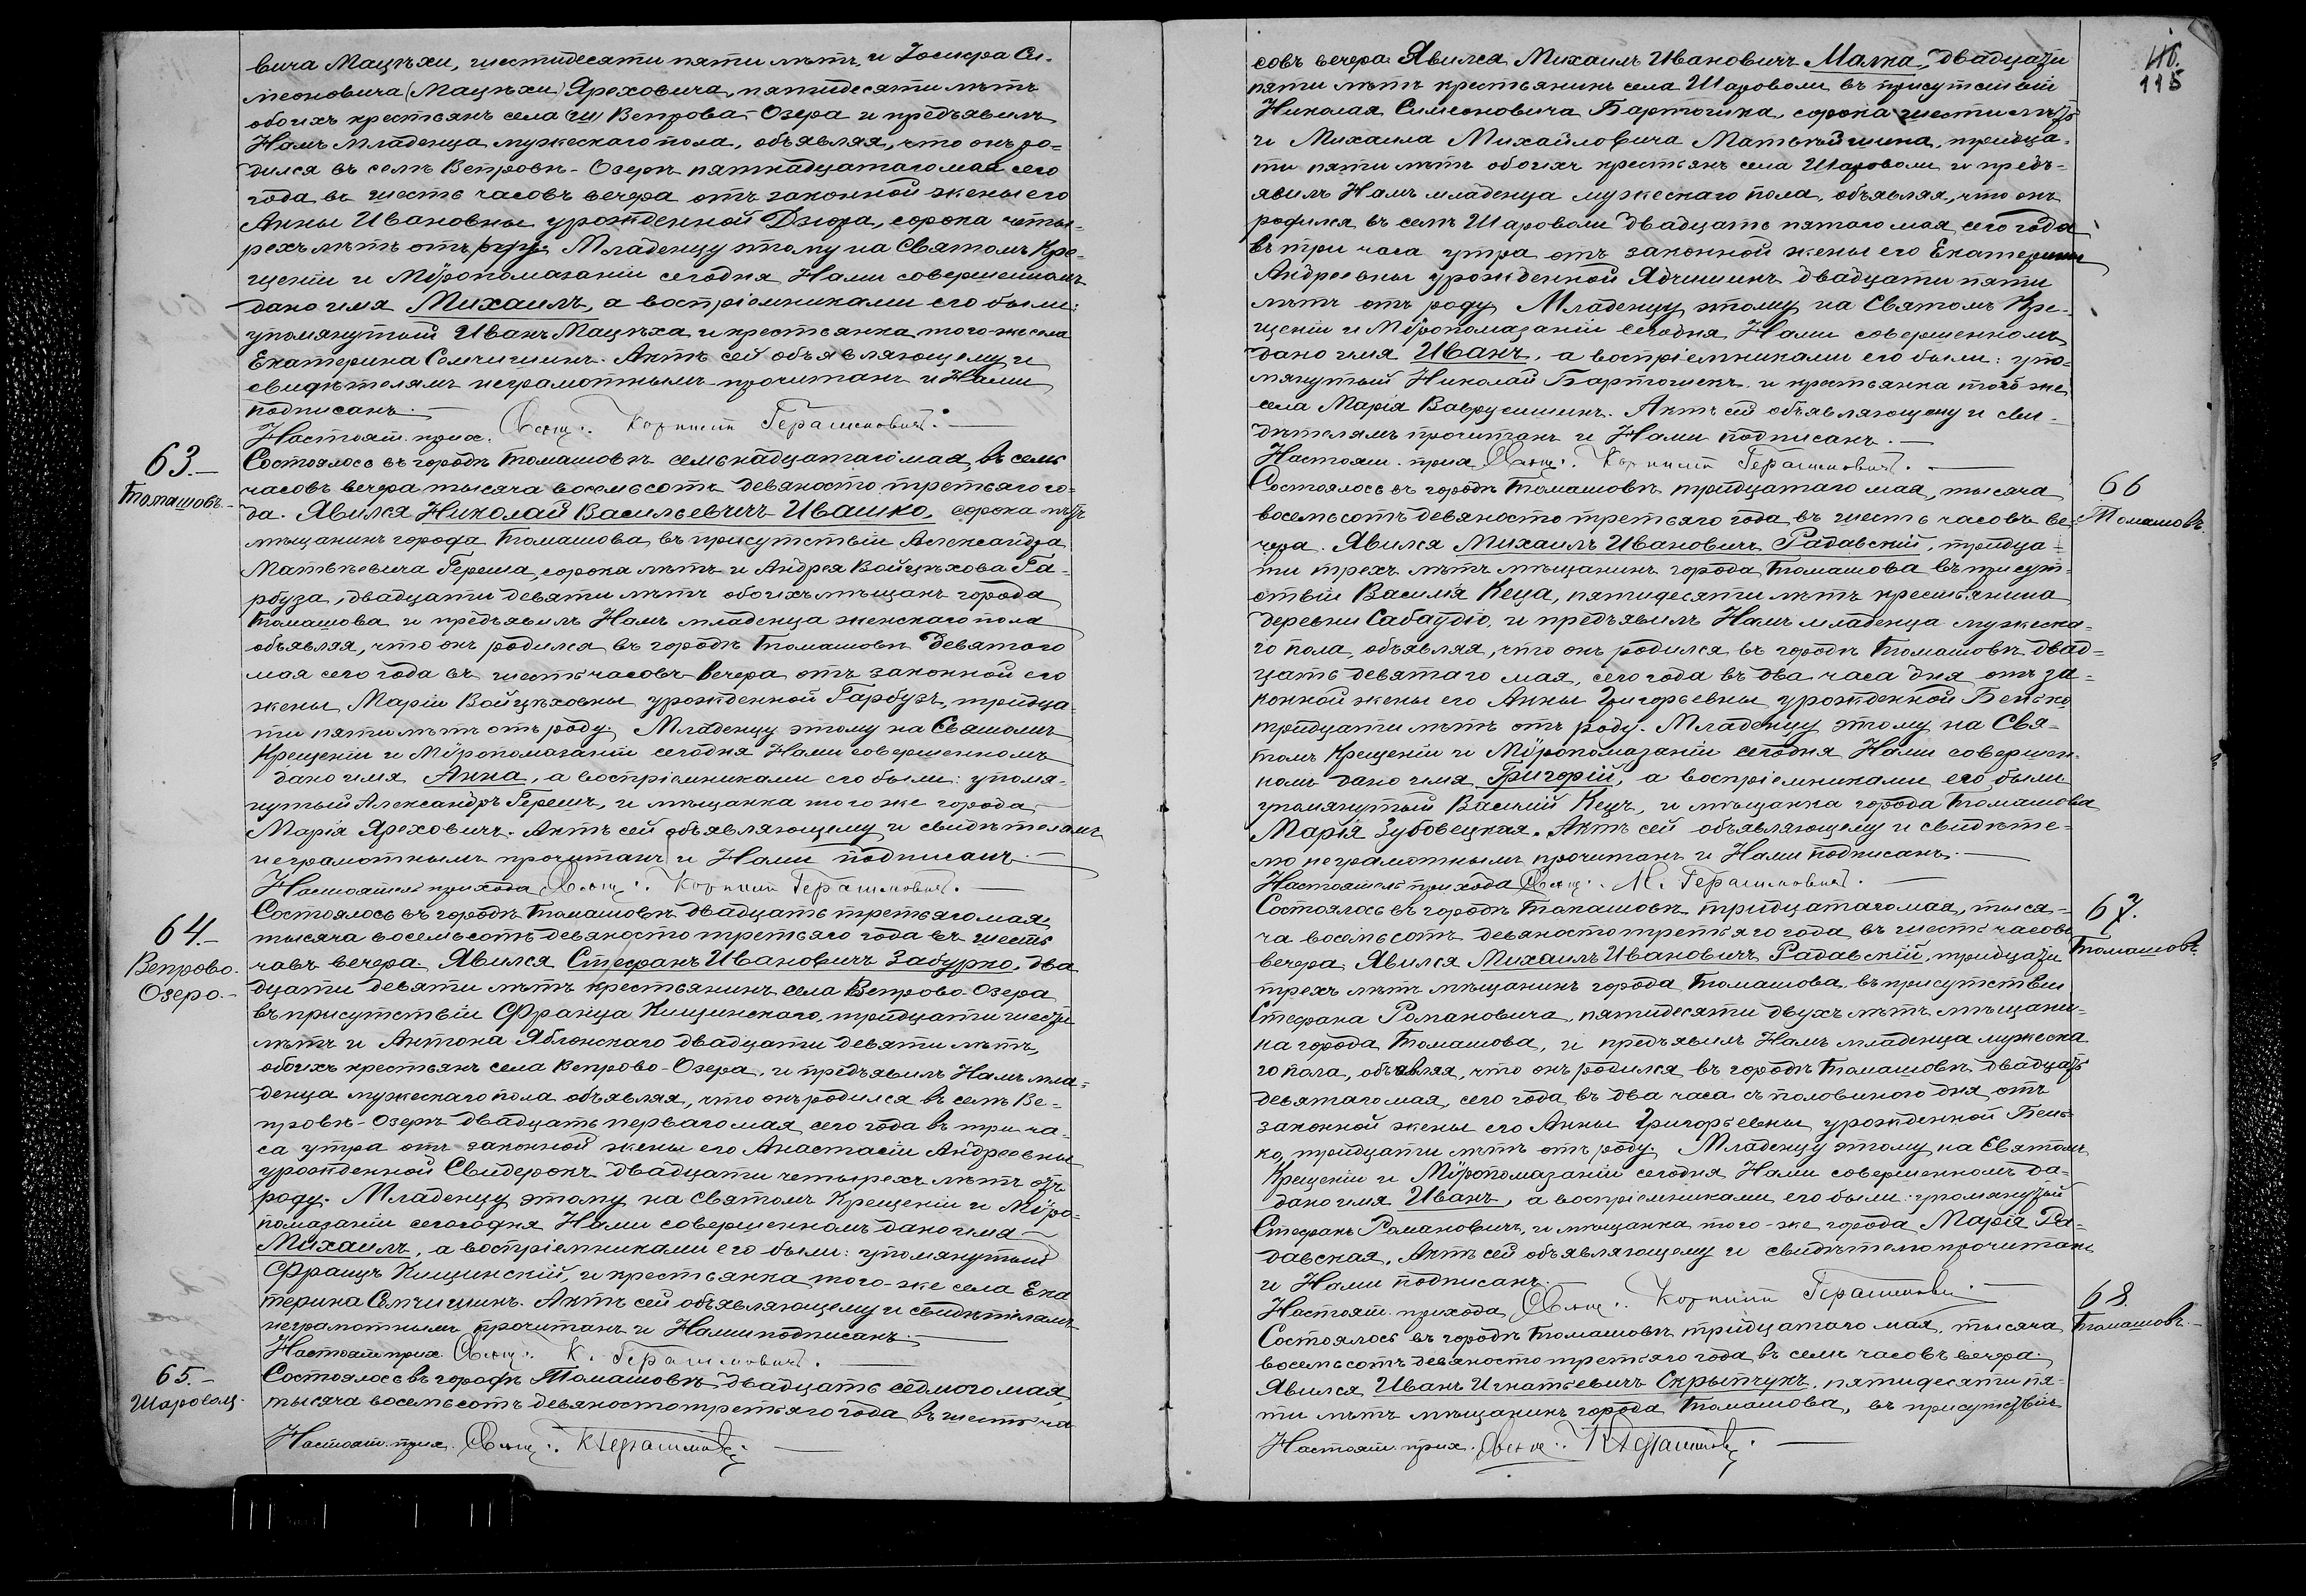 вича Мацѣхи, шестидесяти пяти лѣтъ, и Іосифа Си-
меоновича (Мацѣхи) Яреховича, пятидесяти лѣтъ
обоихъ крестьянъ села Вепрова-Озера и предъявилъ
Намъ младенца мужескаго пола, объявляя, что онъ ро-
дился въ селѣ Вепровѣ-Озерѣ пятнадцатаго мая сего
года въ шесть часовъ вечера отъ законной жены его
Анны Ивановны урожденной Дзюра, сорока четы-
рехъ лѣтъ отъ роду. Младенцу этому на Святомъ Кре-
щеніи и Мѵропомазаніи сегодня Нами совершенномъ
дано имя Михаилъ, а воспріемниками его были:
упомянутый Иванъ Мацѣха и крестьянка того-же села
Екатерина Семчишинъ. Актъ сей объявляющему и
свидѣтелямъ неграмотнымъ прочитанъ и Нами
подписанъ.
Настоят. прих. Свящ. Корнилій Герасимовичъ.
63.
Томашовъ.
Состоялось въ городѣ Томашовѣ семьнадцатаго мая, въ семь
часовъ вечера тысяча восемьсотъ девяносто третьяго го-
да. Явился Николай Васильевичъ Ивашко, сорока лѣтъ
мѣщанинъ города Томашова, въ присутствіи Александра
Матвѣевича Гереша, сорока лѣтъ и Андрея Войцѣхова Га-
рбуза, двадцати девяти лѣтъ обоихъ мѣщанъ города
Томашова и предъявилъ Намъ младенца женскаго пола
объявляя, что онъ родился въ городѣ Томашовѣ девятого
мая сего года въ шесть часовъ вечера отъ законной его
жены Маріи Войцѣховны урожденной Гарбузъ, тридца-
ти пяти лѣтъ отъ роду. Младенцу этому на Святомъ
Крещеніи и Мѵропомазаніи сегодня Нами совершенномъ
дано имя Анна, а воспріемниками его были: упомя-
нутый Александръ Герешъ, и мѣщанка того же города
Марія Яреховичъ. Актъ сей объявляющему и свидѣтелямъ
неграмотнымъ прочитанъ и Нами подписанъ.
Настоятель прихода Свящ. Корнилій Герасимовичъ.
64.
Вепрово.
Озеро.
Состоялось въ городѣ Томашовѣ двадцать третьяго мая,
тысяча восемьсотъ девяносто третьяго года въ шесть
чавъ вечера. Явился Стефанъ Ивановичъ Забурко, два
дцати девяти лѣтъ крестьянинъ села Вепрово-Озера
въ присутствіи Франца Кищинскаго, тридцати шести
лѣтъ и Антона Яблонскаго двадцати девяти лѣтъ,
обоихъ крестьянъ села Вепрово-Озера, и предъявилъ Намъ мла-
денца мужескаго пола объявляя, что онъ родился въ селѣ Ве-
провѣ-Озерѣ двадцать перваго мая сего года въ три ча-
са утра отъ законной жены его Анастасіи Андреевны
урожденной Свидерокъ двадцати четырехъ лѣтъ отъ
роду. Младенцу этому на Святомъ Крещеніи и Мѵро-
помазаніи сегогодня Нами совершенномъ дано имя
Михаилъ, а воспріемниками его были: упомянутый
Францъ Кищинскій, и крестьянка того-же села Ека
терина Семчишинъ. Актъ сей объявляющему и свидѣтелямъ
неграмотнымъ прочитанъ и Нами подписанъ.
Настоят. прих. Свящ. К. Герасимовичъ.
65.
Шароволя.
Состоялось въ городѣ Томашовѣ двадцать седмого мая,
тысяча восемьсотъ девяносто третьяго года въ шесть ча
Настоят. прих. Свящ. КГерасимовичъ
115
совъ вечера. Явился Михаилъ Ивановичъ Малка, двадцати
пяти лѣтъ крестьянинъ села Шароволи въ присутствіи
Николая Симеоновича Бартошика, сорока шести лѣтъ
и Михаила Михайловича Матвѣйшина, тридца-
ти пяти лѣтъ обоихъ крестьянъ села Шароволи и предъ-
явилъ Намъ младенца мужескаго пола, объявляя, что онъ
родился въ селѣ Шароволи двадцать пятаго мая, сего года
въ три часа утра отъ законной жены его Екатерины
Андреевны урожденной Ядчишинъ двадцати пяти
лѣтъ отъ роду. Младенцу этому на Святомъ Кре-
щеніи и Мѵропомазаніи сегодня Нами совершенномъ
дано имя Иванъ, а воспріемниками его были: упо-
мянутый Николай Бартошикъ и крестьянка того же
села Марія Ваврусишинъ. Актъ сей объявляющему и сви-
дѣтелямъ прочитанъ и Нами подписанъ.
Настоят. прих. Свящ. Корнилій Герасимовичъ.
66
Томашовъ.
Состоялось въ городѣ Томашовѣ тридцатаго мая, тысяча
восемьсотъ девяносто третьяго года въ шесть часовъ ве-
чера. Явился Михаилъ Ивановичъ Радавскій, тридца-
ти трехъ лѣтъ мѣщанинъ города Томашова въ присут-
ствіи Василія Кеца, пятидесяти лѣтъ крестьянина
деревни Сабаудіо, и предъявилъ Намъ младенца мужеска-
го пола, объявляя, что онъ родился въ городѣ Томашовѣ двад-
цать девятаго мая, сего года въ два часа дня отъ за-
конной жены его Анны Григорьевны урожденной Бенько
тридцати лѣтъ отъ роду. Младенцу этому на Свя-
томъ Крещеніи и Мѵропомазаніи сегодня Нами совершен-
номъ дано имя Григорій, а воспріемниками его были
упомянутый Василій Кецъ, и мѣщанка города Томашова
Марія Зубовецкая. Актъ сей объявляющему и свидѣте-
лю неграмотнымъ прочитанъ и Нами подписанъ.
Настоятель прихода Свящ. К. Герасимовичъ.
67.
Томашовъ.
Состоялось въ городѣ Томашовѣ тридцатаго мая, тыся-
ча восемьсотъ девяносто третьяго года въ шесть часовъ
вечера. Явился Михаилъ Ивановичъ Радавскій, тридцати
трехъ лѣтъ мѣщанинъ города Томашова въ присутствіи
Стефана Романовича, пятидесяти двухъ лѣтъ мѣщани-
на города Томашова, и предъявилъ Намъ младенца мужеска
го пола, объявляя, что онъ родился въ городѣ Томашовѣ двадцать
девятаго мая, сего года въ два часа съ половиною дня отъ
законной жены его Анны Григорьевны урожденной Бень-
ко, тридцати лѣтъ отъ роду. Младенцу этому на Святомъ
Крещеніи и Мѵропомазаніи сегодня Нами совершенномъ да-
дано имя Иванъ, а воспріемниками его были: упомянутый
Стефанъ Романовичъ, и мѣщанка того-же города Марія Ра-
давская. Актъ сей объявляющему и свидѣтелю прочитанъ
и Нами подписанъ.
Настоят. прихода Свящ. Корнилій Герасимович.
68.
Томашовъ.
Состоялось въ городѣ Томашовѣ тридцатаго мая, тысяча
восемьсотъ девяносто третьяго года въ семь часовъ вечера.
Явился Иванъ Игнатьевичъ Скрыпчукъ, пятидесяти пя-
ти лѣтъ мѣщанинъ города Томашова, въ присутствіи
Настоят. прих. Свящ. КГерасимовичъ